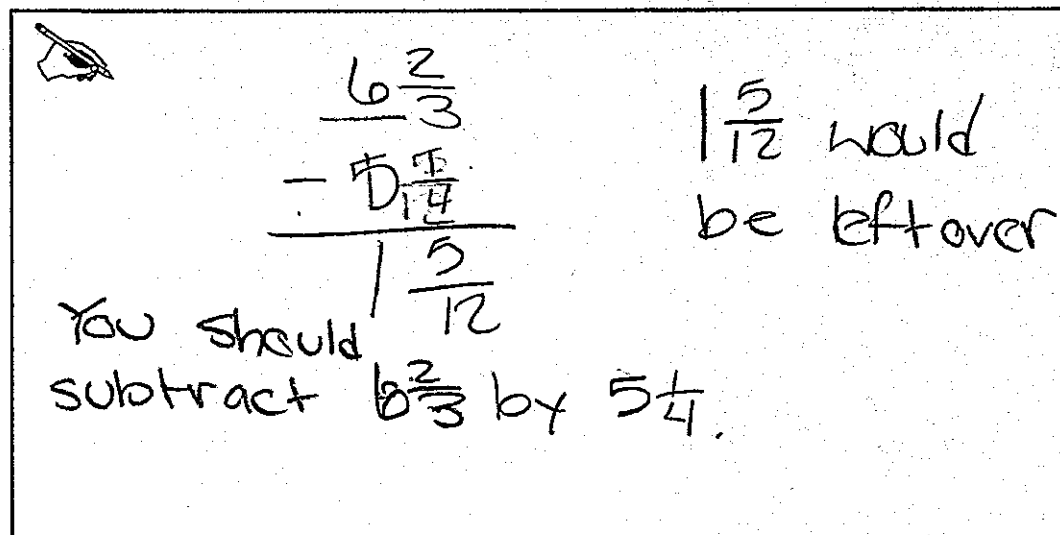 6 2/3
- 5 1/4
1 5/12
1 5/12 would
be leftover
You should
subtract 6 2/3 by 5 1/4.